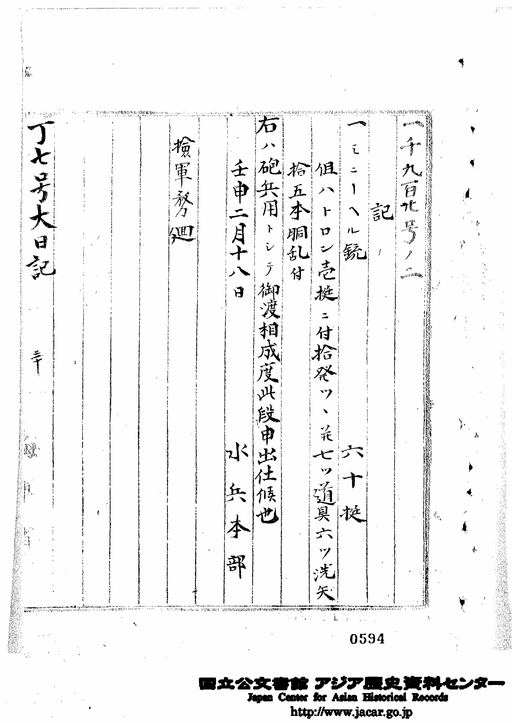 一千九百廿号ノ二
記
一ミニーヘル銃 六十挺
但ハトロン壱挺ニ付拾発ツヽ並七ツ道具六ツ洗矢
拾五本胴乱付
右ハ砲兵用トシテ御渡相成度此段申出仕候也
壬申二月十八日 水兵本部
検軍務廻
丁七号大日記
0594
国立公文書館 アジア歴史資料センター
Japan Center for Asian Historical Records
http://www.jacar.go.jp